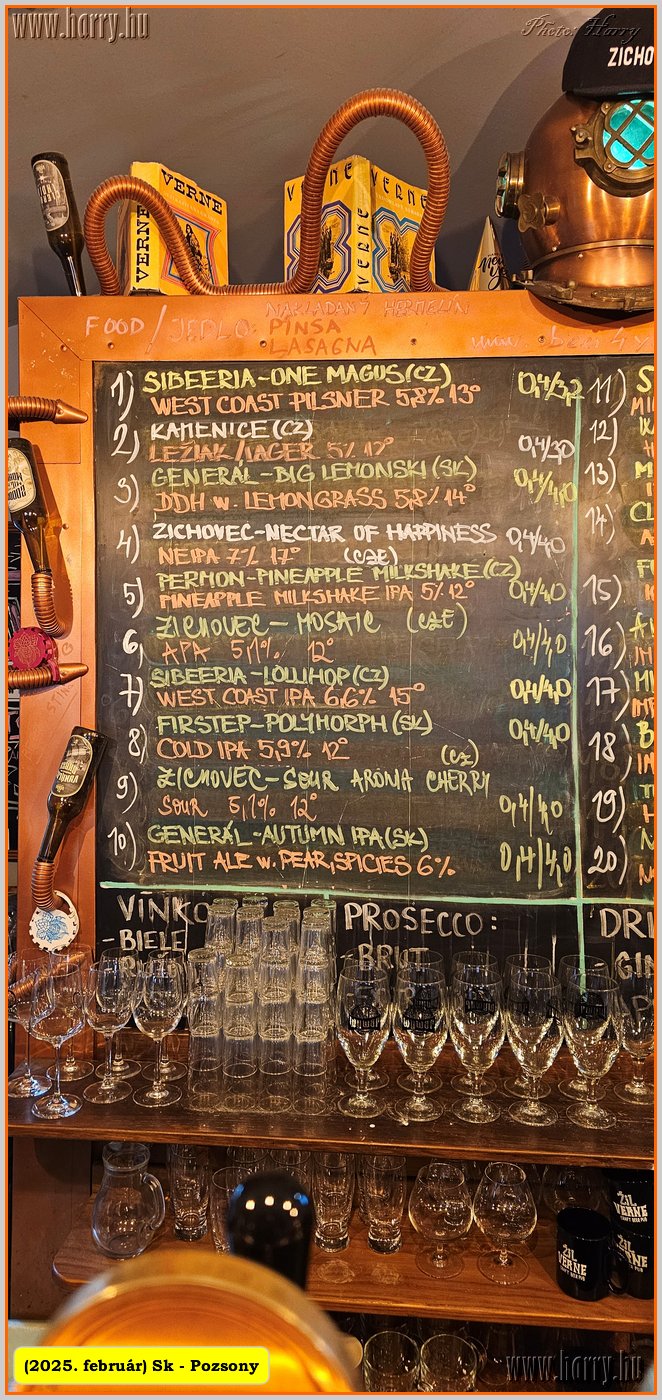 www.horry.hu
Photos Horry
ZICHO
VERNE
VERNE
VERNE
VERNE
VERNE
NAKLADANÝ HERMELÍN
FOOD/JEDLO: PINSA
LASAGNA
1) SIBEERIA-ONE MAGUS(CZ) 0,4/3,2
WEST COAST PILSNER 5,8% 13°
2) KAMENICE(CZ)
LEŽIAK/LAGER 5% 12° 0,4/3,0
3) GENERÁL-BIG LEMONSKI (SK) 0,4/4,0
DDH w. LEMONGRASS 5,8% 14°
4) ZICHOVEC-NECTAR OF HAPPINESS 0,4/4,0
NEIPA 7% 17° (CZE)
5) PERMON-PINEAPPLE MILKSHAKE(CZ) 0,4/4,0
PINEAPPLE MILKSHAKE IPA 5% 12°
6) ZICHOVEC- MOSAIC (CZE) 0,4/4,0
APA 5,1% 12°
7) SIBEERIA-LOLLIHOP(CZ) 0,4/4,0
WEST COAST IPA 6,6% 15°
8) FIRSTEP-POLYMORPH (SK) 0,4/4,0
COLD IPA 5,9% 12° (CZ)
9) ZICHOVEC-SOUR ARONIA CHERRY
SOUR 5,1% 12° 0,4/4,0
10) GENERÁL-AUTUMN IPA(SK) 0,4/4,0
FRUIT ALE w. PEAR, SPICIES 6%
11)
12)
13)
14)
15)
16)
17)
18)
19)
20)
VINKO
-BIELE
PROSECCO:
-BRUT
DRI
-GIN
ŽIL
VERNE
CRAFT BEER PUB
ŽIL
VERNE
ŽIL
VERNE
(2025. február) Sk - Pozsony
www.horry.hu